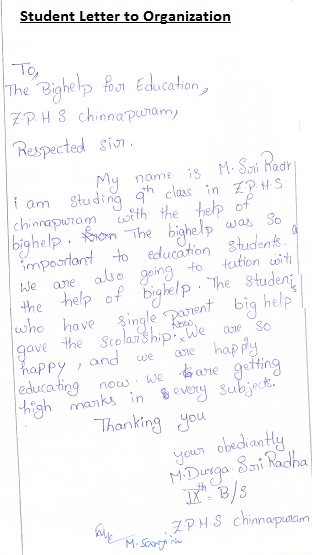 Student Letter to Organization
To,
The Bighelp for Education,
Z.P.H.S chinnapuram,
Respected sir.
My name is M. Sri Radh
i am studing 9th class in Z.P.H.S
chinnapuram with the help of
bighelp. The bighelp was so
important to education students.
We are also going to tution with
the help of bighelp. The students
who have single parent big help
gave the scolarship. Now We are so
happy, and we are happily
educating now. We are getting
high marks in every subjects.
Thanking you
your obediantly
M. Durga Sri Radha
IXth - B/S
Z.P.H.S chinnapuram